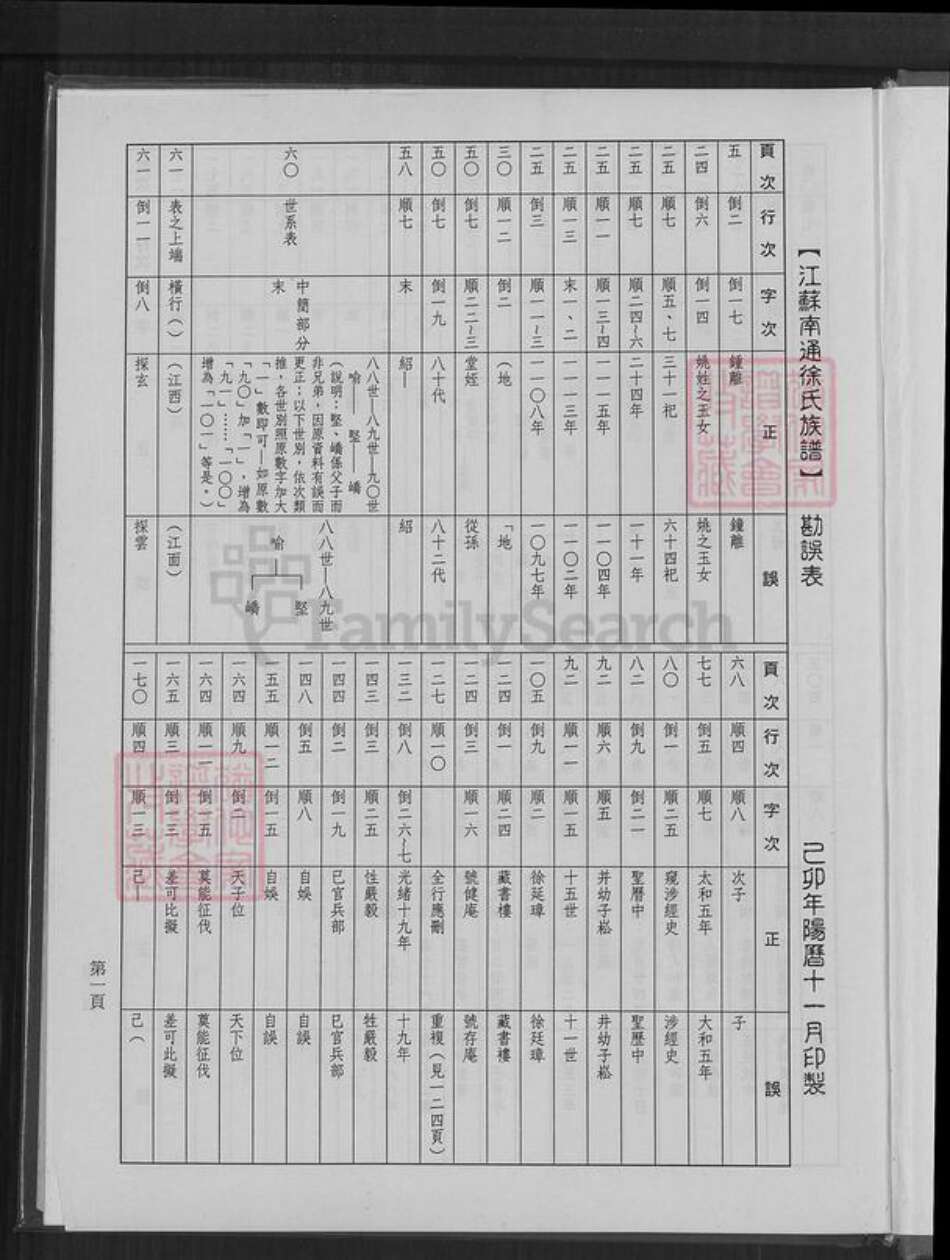 【江蘇南通徐氏族譜】 勘誤表 己卯年陽曆十一月印製
頁次 行次 字次 正 誤
五 倒二 倒一七 鍾離 鐘離
二四 倒六 倒一四 姚姓之玉女 姚之玉女
二五 順七 順五、七 三十一祀 六十四祀
二五 順七 順二四~六 二十四年 一十一年
二五 順一一 順一三~四 一一一五年 一一〇四年
二五 順一三 末一、二 一一一三年 一一〇二年
二五 倒三 順一一~三 一一〇八年 一〇九七年
三〇 順一二 倒二 (地 「地
五〇 倒七 順二二~三 堂姪 從孫
五〇 倒七 倒一九 八十代 八十二代
五八 順七 末 紹— 紹
六〇 世系表 中間部分末
八八世—八九世—九〇世
喻 — 堅 — 嶠
(說明:堅、嶠係父子而
非兄弟,因原資料有誤而
更正;以下世別,依次類
推,各世別照原數字加大
「一」數即可—如原數
「九〇」加「一」,增為
「九一」……「一〇〇」
增為「一〇一」等是。)
八八世—八九世
喻 堅 嶠
六一 表之上端 橫行() (江西) (江面)
六一 倒一一 倒八 探玄 探雲
頁次 行次 字次 正 誤
六八 順四 順八 次子 子
七七 倒五 順七 太和五年 大和五年
八〇 倒一 順二五 窺涉經史 涉經史
八二 倒九 倒二一 聖曆中 聖歷中
九二 順六 順五 并幼子崧 井幼子崧
九二 順一一 順一五 十五世 十一世
一〇五 倒九 順二 徐延瑋 徐廷瑋
一二四 倒一 順二四 藏書樓 藏書褸
一二四 倒三 順一六 號健庵 號存庵
一二七 順一〇 全行應刪 重複(見一二四頁)
一三二 倒八 倒二六~七 光緒十九年 十九年
一四三 倒三 順二五 性嚴毅 牲嚴毅
一四四 倒二 倒一九 已官兵部 巳官兵部
一四八 倒五 順八 自娛 自誤
一五五 順一二 倒一五 自娛 自誤
一六四 順九 倒二 天子位 天下位
一六四 順一一 倒二五 莫能征伐 萛能征伐
一六五 順三 倒三 差可比擬 差可此擬
一七〇 順四 順一三 己— 己(
第一頁
FamilySearch